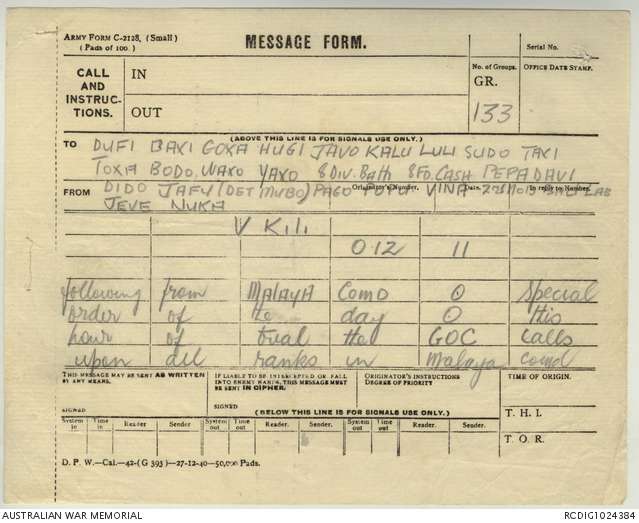 ARMY FORM C-2128, (Small)
(Pads of 100.)
MESSAGE FORM.
Serial No.
CALL
AND
INSTRUC-
TIONS.
IN
OUT
No. of Groups.
GR.
133
OFFICE DATE STAMP.
(ABOVE THIS LINE IS FOR SIGNALS USE ONLY.)
TO DUFI BAXI GOXA HUGI JAVO KALU LULI SUDO TAXI
TOXIA BODO, WAXO YAXO 8 DIV. Bath 8 FD. CASH PEPA DAVI
FROM DIDO JAFU (DET MUBO) PAGO POPU VINA
Originator's Number.
In reply to Number.
JEVE NUKA
V K.I.
012 11
following from MALAYA COMD O special
order of the day O this
hour of trial the GOC calls
upon all ranks in Malaya comd
THIS MESSAGE MAY BE SENT AS WRITTEN
BY ANY MEANS.
SIGNED
IF LIABLE TO BE INTERCEPTED OR FALL
INTO ENEMY HANDS, THIS MESSAGE MUST
BE SENT IN CIPHER.
SIGNED
ORIGINATOR'S INSTRUCTIONS
DEGREE OF PRIORITY
TIME OF ORIGIN.
(BELOW THIS LINE IS FOR SIGNALS USE ONLY.)
T. H. I.
System in Time in Reader Sender System out Time out Reader Sender System out Time out Reader Sender
T. O. R.
D. P. W.—Cal.—42-(G 393)—27-12-40—50,000 Pads.
AUSTRALIAN WAR MEMORIAL
RCDIG1024384